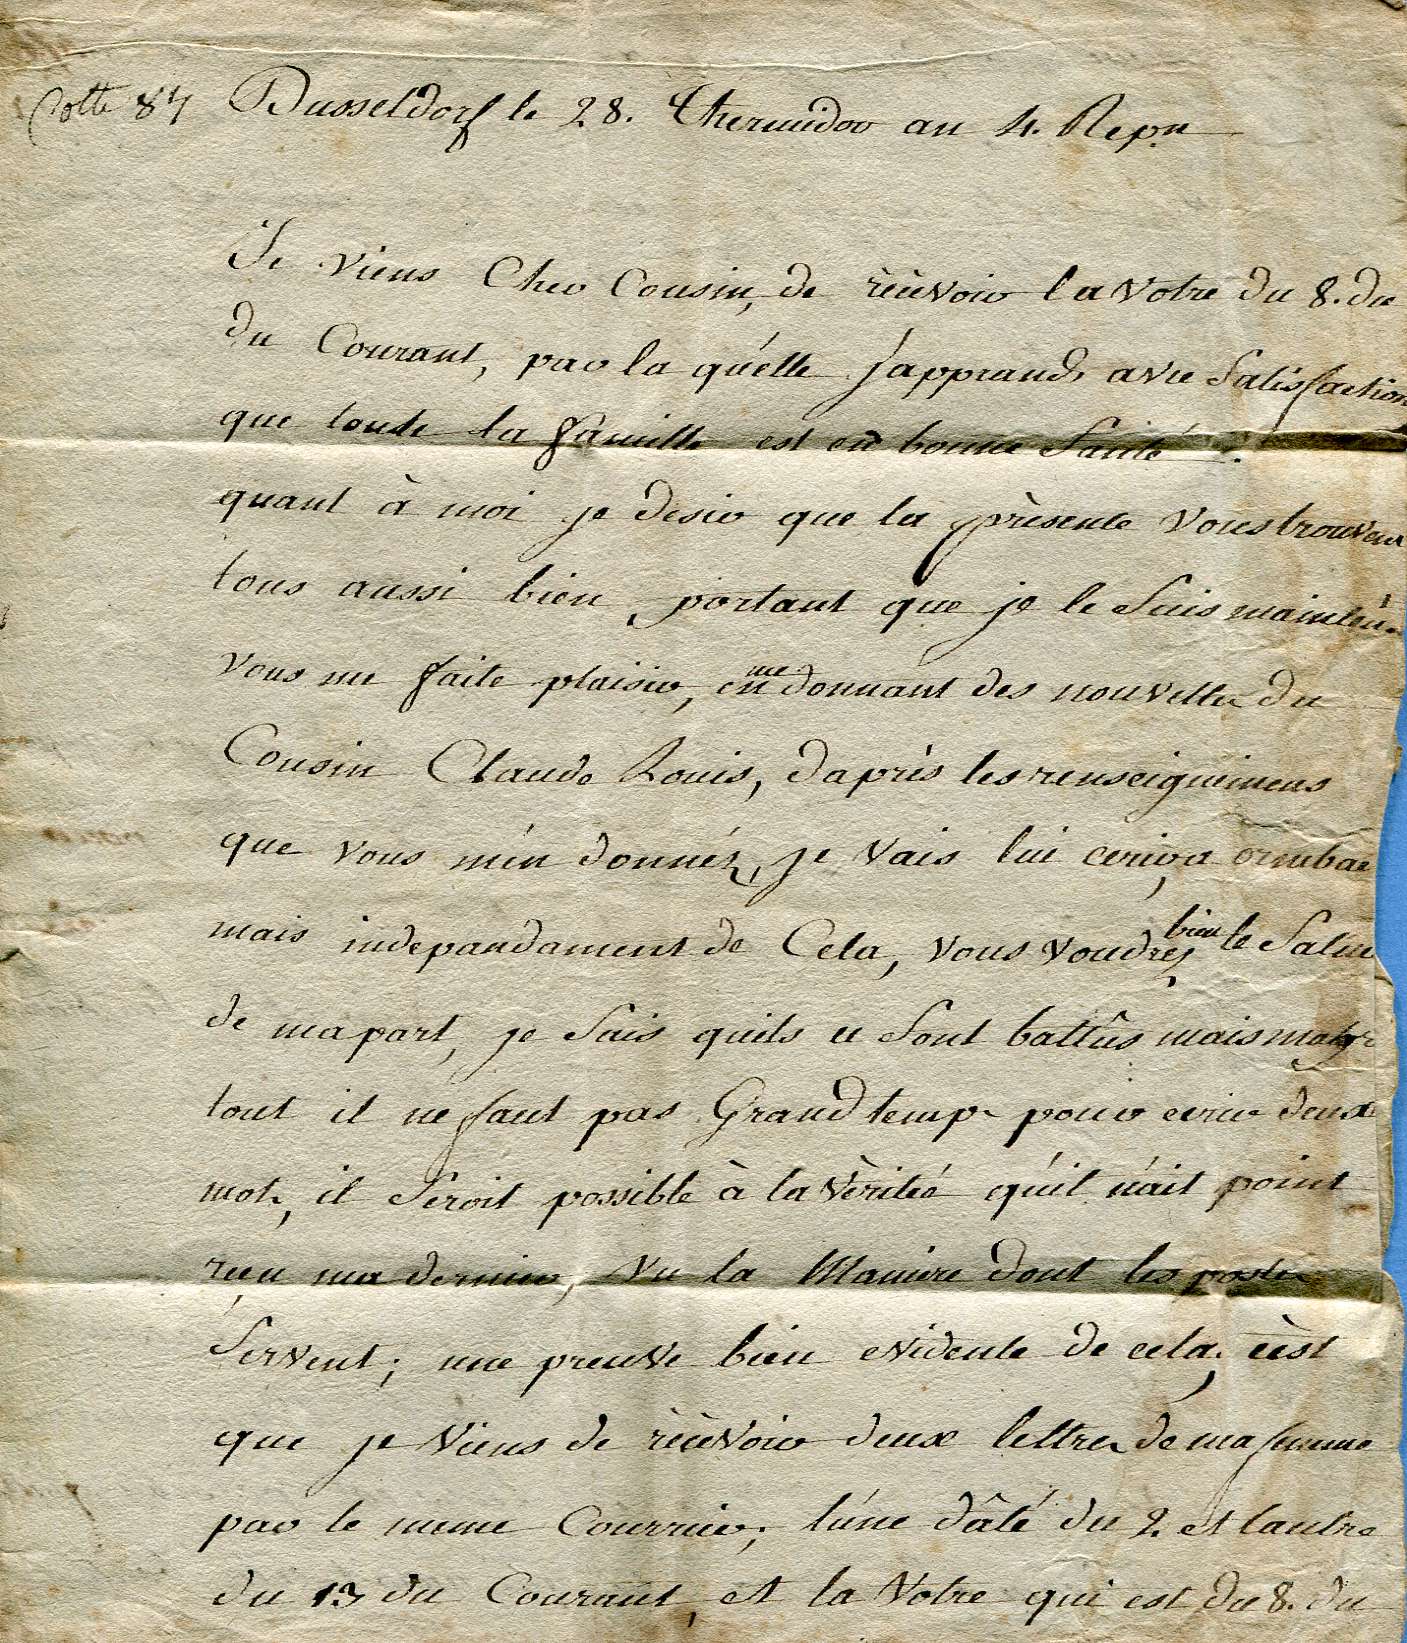 Cotte 87 Dusseldorf le 28. Thermidor an 4. Repn
Je viens Cher Cousin, de rècevoir la Votre du 8. du
du Courant, par la qu'elle japprands avec Satisfaction
que toute la famille est en bonne Santé.
quant à moi je desir que la prèsente vous trouvera
tous aussi bien portant que je le Suis
vous me faite plaisir, en me donnant des nouvelles du
Cousin Claude Louis, daprès les renseignemens
que vous m'en donnéz, je vais lui ecrire
mais indepandament de Cela, vous voudrez bien le Saluer
de ma part, je Sais quils ce Sont battûs mais malgré
tout il ne faut pas Grand temps pour ecrire deux
mots, il Seroit possible à la Vèriteé qu'il n'ait point
reçu ma derniere, vu la Maniere dont les postes
Servent; une preuve bien evidente de cela, c'est
que je viens de rècevoir deux lettres de ma femme
par le meme Courrier, l'une dâté du 2. et lautre
du 13 du Courant, et la Votre qui est du 8. du